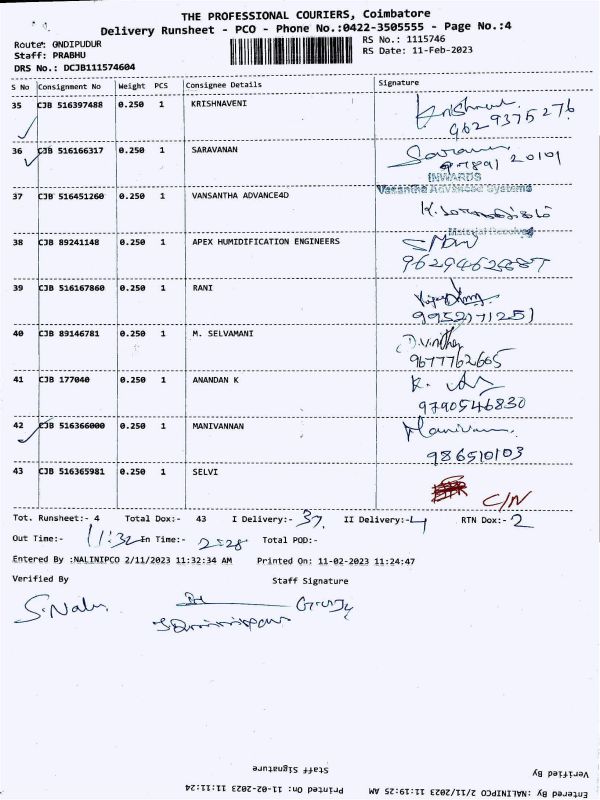 THE PROFESSIONAL COURIERS, Coimbatore
Delivery Runsheet - PCO - Phone No.:0422-3505555 - Page No.:4
Route: GNDIPUDUR
RS No.: 1115746
Staff: PRABHU
RS Date: 11-Feb-2023
DRS No.: DCJB111574604
S No Consignment No Weight PCS Consignee Details Signature
35 CJB 516397488 0.250 1 KRISHNAVENI
9629375276
36 CJB 516166317 0.250 1 SARAVANAN
INWARDS
37 CJB 516451260 0.250 1 VANSANTHA ADVANCE4D
Vasantha Advanced Systems
Material Received
38 CJB 89241148 0.250 1 APEX HUMIDIFICATION ENGINEERS
39 CJB 516167860 0.250 1 RANI
40 CJB 89146781 0.250 1 M. SELVAMANI
9677762665
41 CJB 177040 0.250 1 ANANDAN K
9790546830
42 CJB 516366000 0.250 1 MANIVANNAN
Manivann
986510103
43 CJB 516365981 0.250 1 SELVI
C/N
Tot. Runsheet:- 4 Total Dox:- 43 I Delivery:- 37 II Delivery:- 4 RTN Dox:- 2
Out Time:- 11:32 In Time:- Total POD:-
Entered By :NALINIPCO 2/11/2023 11:32:34 AM Printed On: 11-02-2023 11:24:47
Verified By Staff Signature
S.Nalin
Staff Signature
Verified By
Printed On: 11-02-2023 11:11:24
Entered By :NALINIPCO 2/11/2023 11:19:25 AM